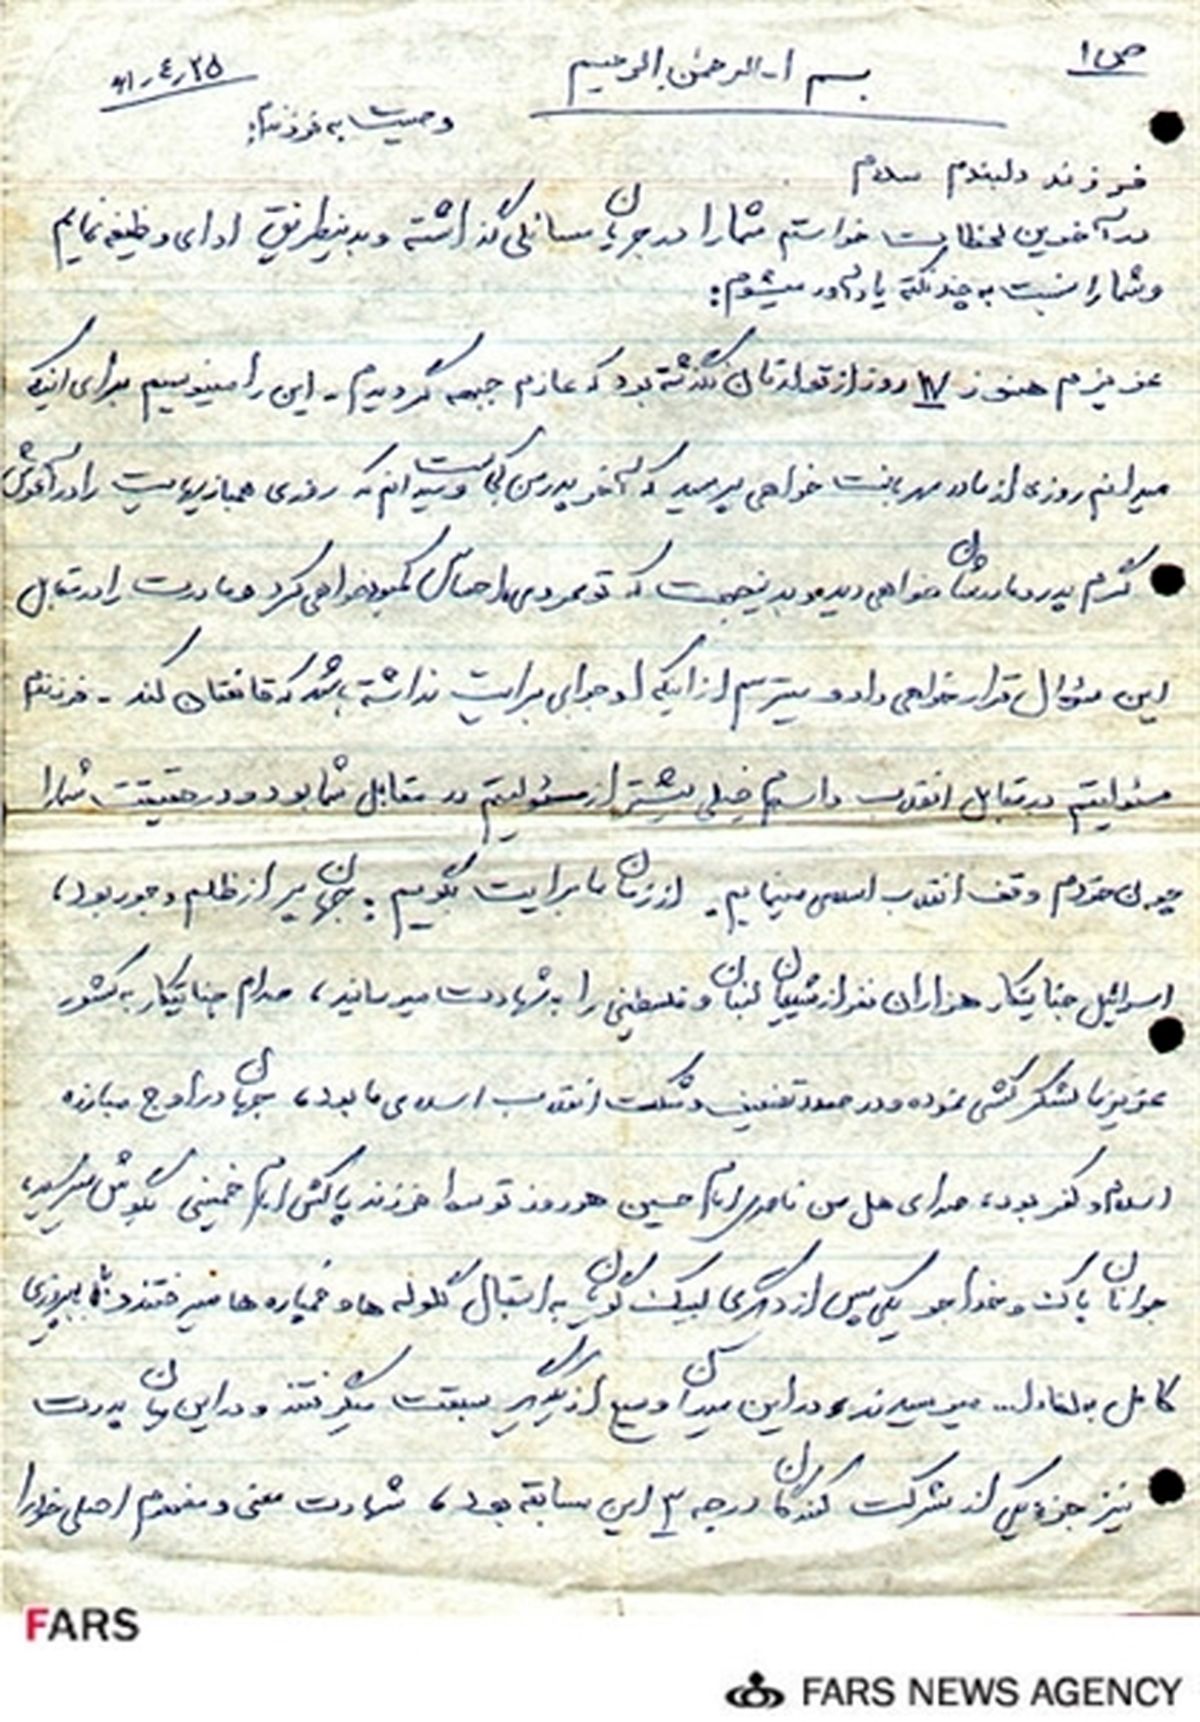 ص ۱
بسم ا... الرحمن الرحیم
۶۱٫۴٫۲۵
وصیت به فرزندم:
فرزند دلبندم سلام
در آخرین لحظات خواستم شما را در جریان مسائلی گذاشته و بدینطریق ادای وظیفه نمایم
و شما را نسبت به چند نکته یادآور میشوم:
عزیزم هنوز ۱۷ روز از تولدتان نگذشته بود که عازم جبهه گردیدم - این را مینویسم برای اینکه
میدانم روزی از مادر مهربانت خواهی پرسید که آخر پدر من کجاست و میدانم که روزی همبازیهایت را در آغوش
گرم پدر و مادرشان خواهی دید و بدینجهت که تو احساس کمبود خواهی کرد و مادرت را در مقابل
این سؤال قرار خواهی داد و میترسم از اینکه او جوابی برایت نداشته باشد که قانعتان کند - فرزندم
مسئولیتم در مقابل انقلاب و اسلام خیلی بیشتر از مسئولیتم در مقابل شما بود و در حقیقت شما را
چون خودم وقف انقلاب اسلامی مینمایم. از زمان ما برایت بگویم: جهان پر از ظلم و جور بود،
اسرائیل جنایتکار هزاران نفر از شیعیان لبنان و فلسطینی را به شهادت میرساند، صدام جنایتکار به کشور
عزیز ما لشکر کشی نموده و در صدد تضعیف و شکست انقلاب اسلامی ما بود، جهان در اوج مبارزه
اسلام و کفر بود، صدای هل من ناصر امام حسین هر روز توسط فرزند پاکش امام خمینی بگوش میرسید،
جوانان پاک و خداجو یکی پس از دیگری لبیک گویان به استقبال گلوله ها و خمپاره ها میرفتند و به پیروزی
کامل به لقاءا... میرسیدند و در این میدان وسیع از یکدیگر سبقت میگرفتند و در این میان پدرت
نیز جزء یکی از شرکت کنندگان درجه ۳ این مسابقه بود، شهادت معنی و مفهوم اصلی خود را
FARS
FARS NEWS AGENCY